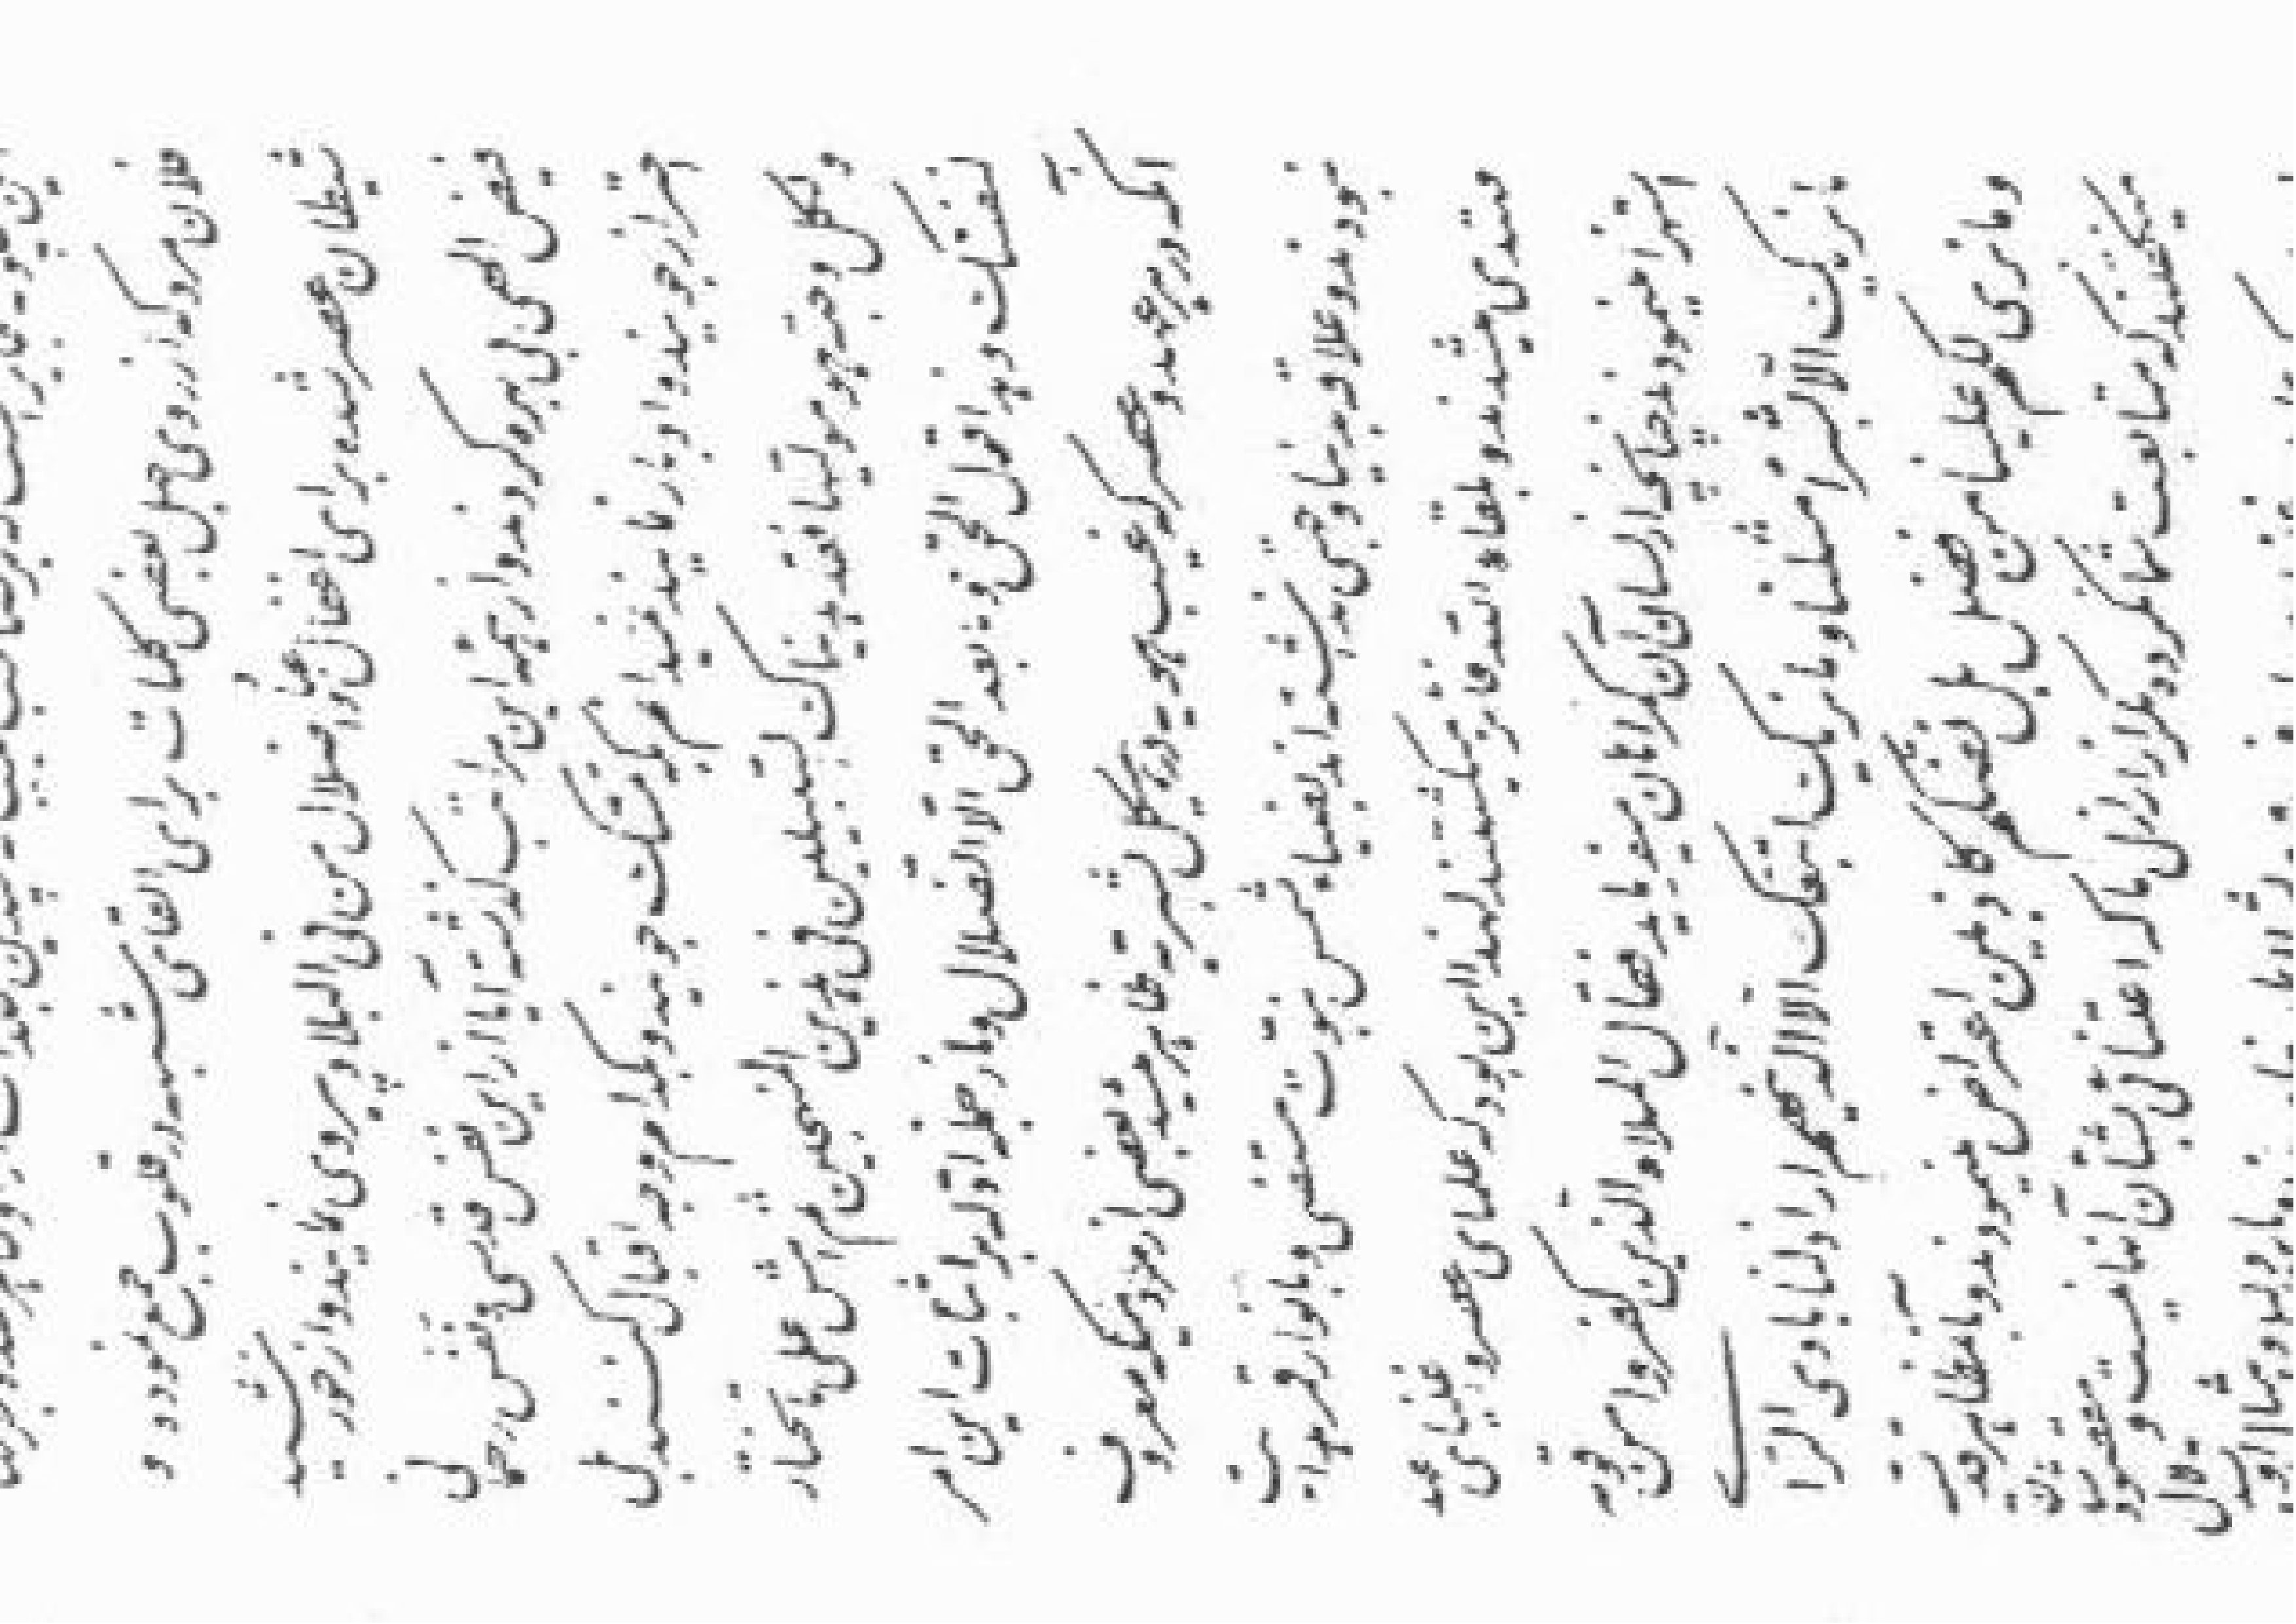 فلان مرو که از روی جهل بعضی کلمات برای القای شبهه در قلوب جمع نموده و
شیطان عصر شده برای اغفال عباد و ضلال من فی البلاد پیروی ننمایند و از خورشید
فیض الهی بی بهره نگردند و از همه این مراتب گذشته آیا از این نفس قدسی و نفس رحمانی
احتراز جویند و ادبار نمایند نمیدانم بکه تمسک جویند و بکدام وجه اقبال کنند بلی
ولکل وجهة هو مولیها لقد هدیناک السبیلین فی هذین المنهجین ثم امش علی ما تختار
لنفسک و هذا قول الحق و ما بعد الحق الا الضلال و از جمله ادله بر اثبات این امر
آنکه در هر عهد و عصر که غیب هویه در هیکل بشریه ظاهر میشد بعضی از مردمی که معروف
نبودند و علاقه بدنیا و جهتی نداشتند بضیاء شمس نبوت مستضیء و بانوار قمر هدایت
مهتدی میشدند و بلقاء الله فائز میگشتند لهذا این بود که علمای عصر و اغنیای عهد
استهزاء مینمودند چنانچه از لسان آن گمراهان میفرماید فقال الملأ الذین کفروا من قومه
ما نریک الا بشرا مثلنا و ما نریک اتبعک الا الذین هم اراذلنا بادی الرأی
و ما نری لکم علینا من فضل بل نظنکم کاذبین اعتراض مینمودند و بآن مظاهر قدسیه
میگفتند که متابعت شما نکرده مگر اراذل ما که اعتنائی بشأن آنها نیست و مقصودشان